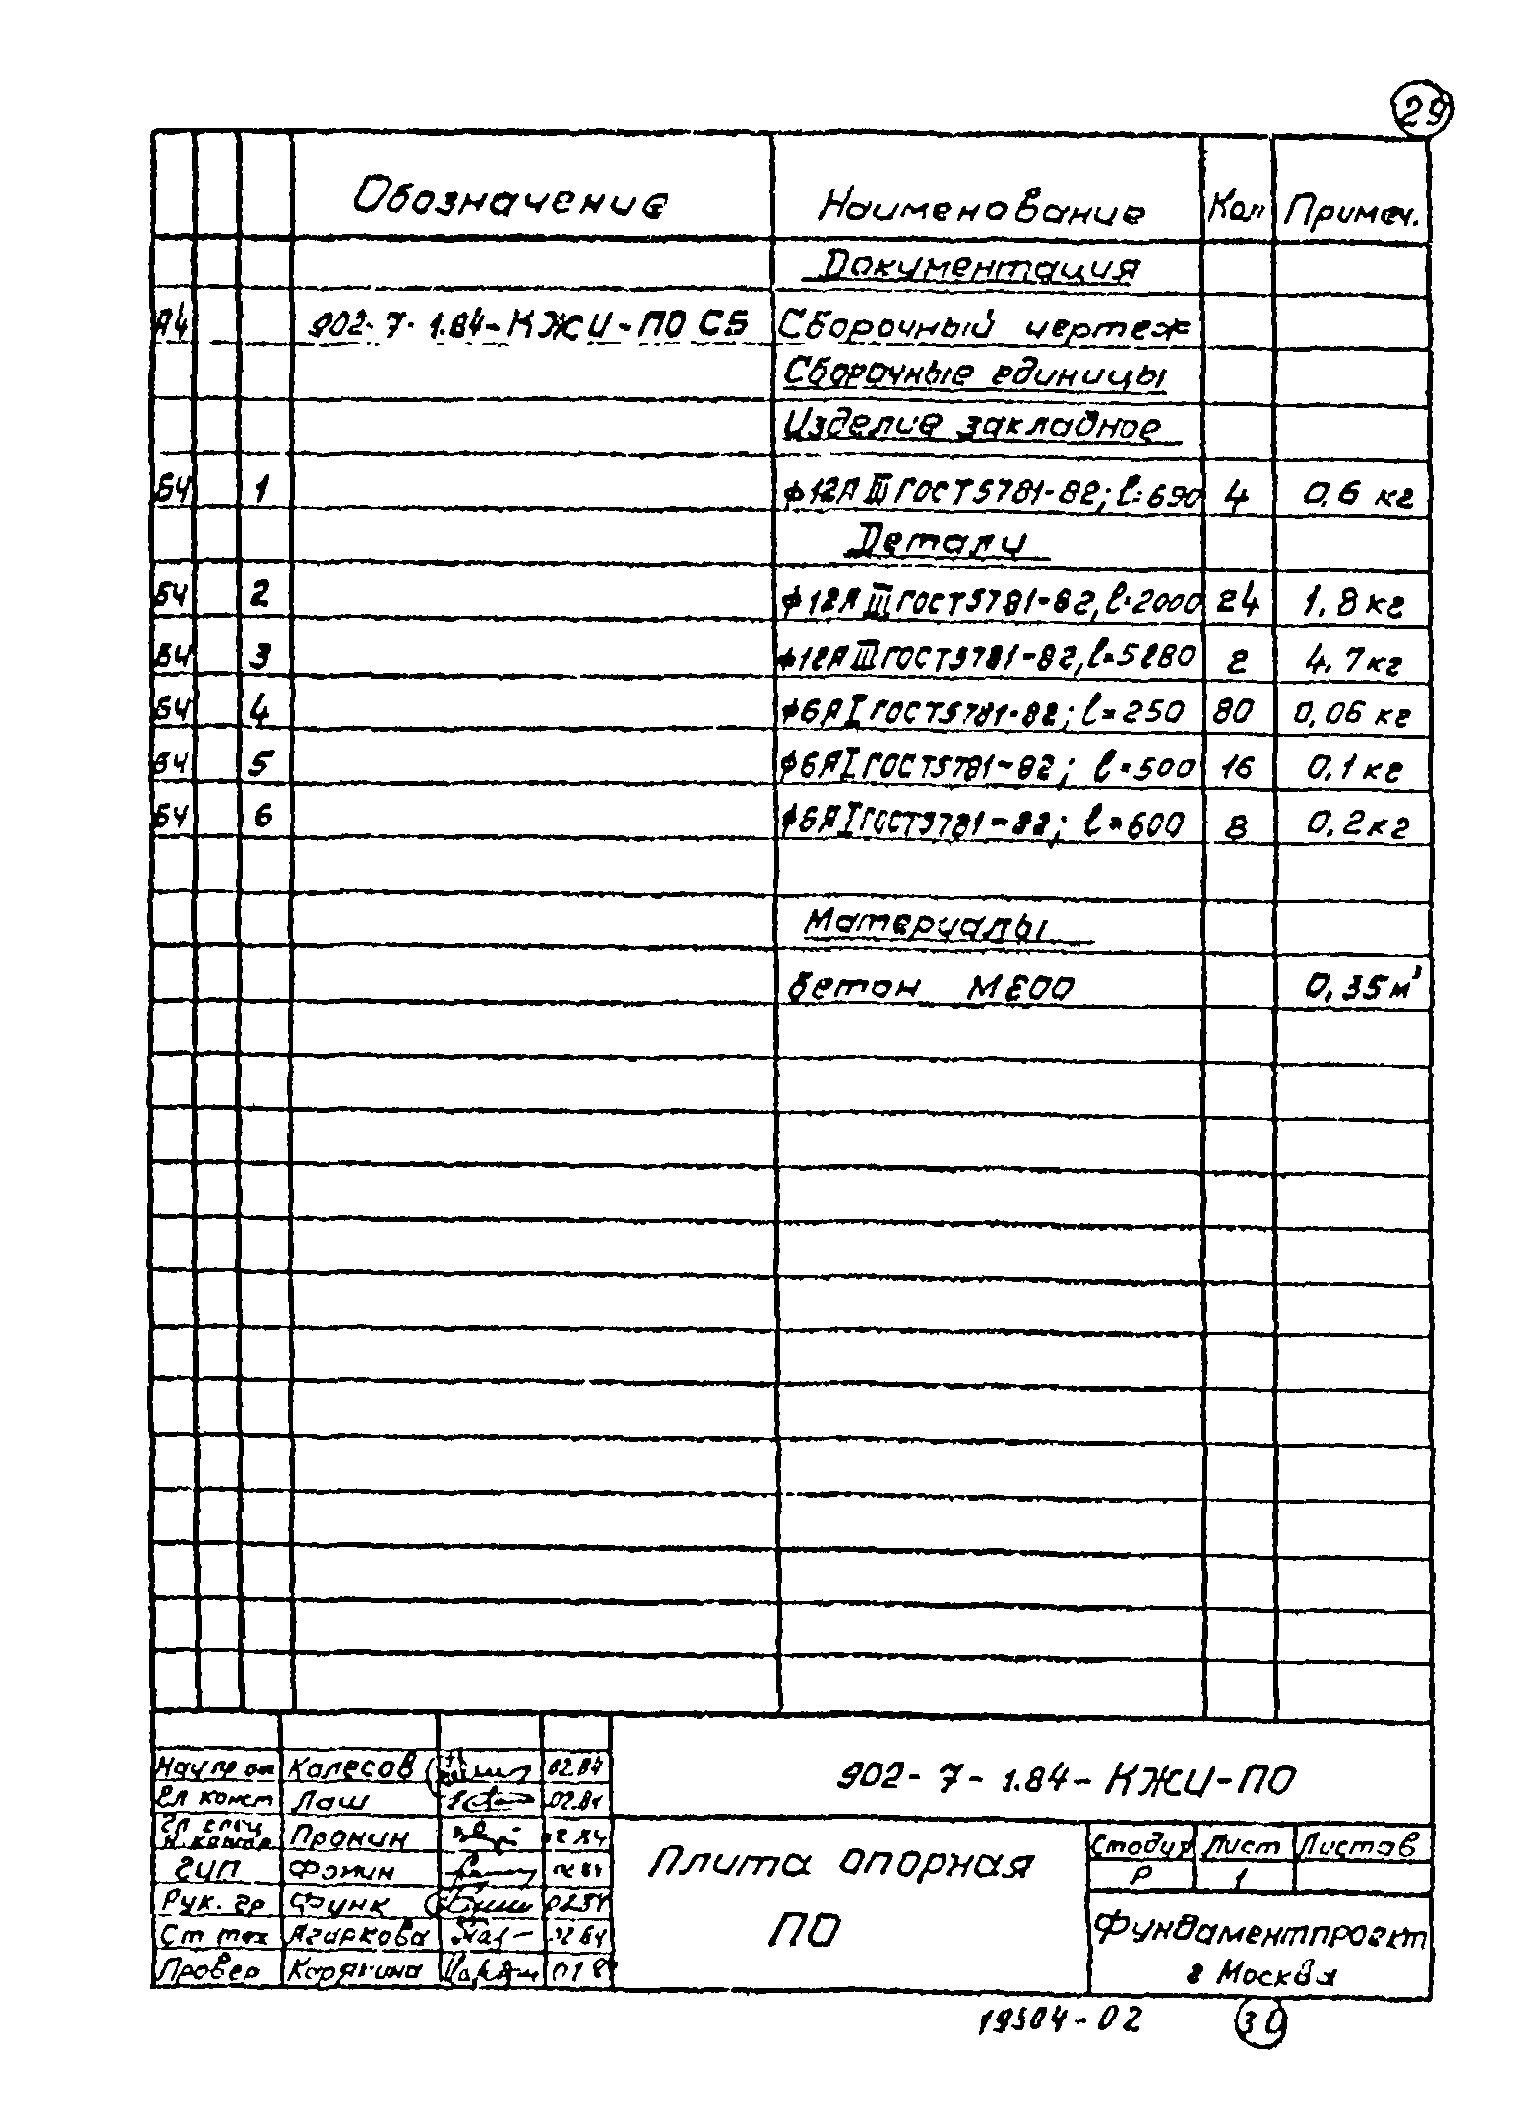 29
Обозначение Наименование Кол Примеч.
Документация
А4 902-7-1.84-КЖИ-ПО СБ Сборочный чертеж
Сборочные единицы
Изделие закладное
БЧ 1 ф12АIII ГОСТ5781-82; l=690 4 0,6 кг
Детали
БЧ 2 ф12АIII ГОСТ5781-82, l=2000 24 1,8 кг
БЧ 3 ф12АIII ГОСТ5781-82, l=5280 2 4,7 кг
БЧ 4 ф6АI ГОСТ5781-82; l=250 80 0,06 кг
БЧ 5 ф6АI ГОСТ5781-82; l=500 16 0,1 кг
БЧ 6 ф6АI ГОСТ5781-82; l=600 8 0,2 кг
Материалы
бетон 0,35м³
902-7-1.84-КЖИ-ПО
Нач пр от Колесов 02.84
Гл конст Лаш 02.84
Гл спец
Н. контр Пронин
ГИП Фомин
Рук. гр Функ
Ст тех Агиркова
Провер Корякина
Плита опорная
ПО
Стадия Лист Листов
Р 1
Фундаментпроект
г Москва
19504-02 30